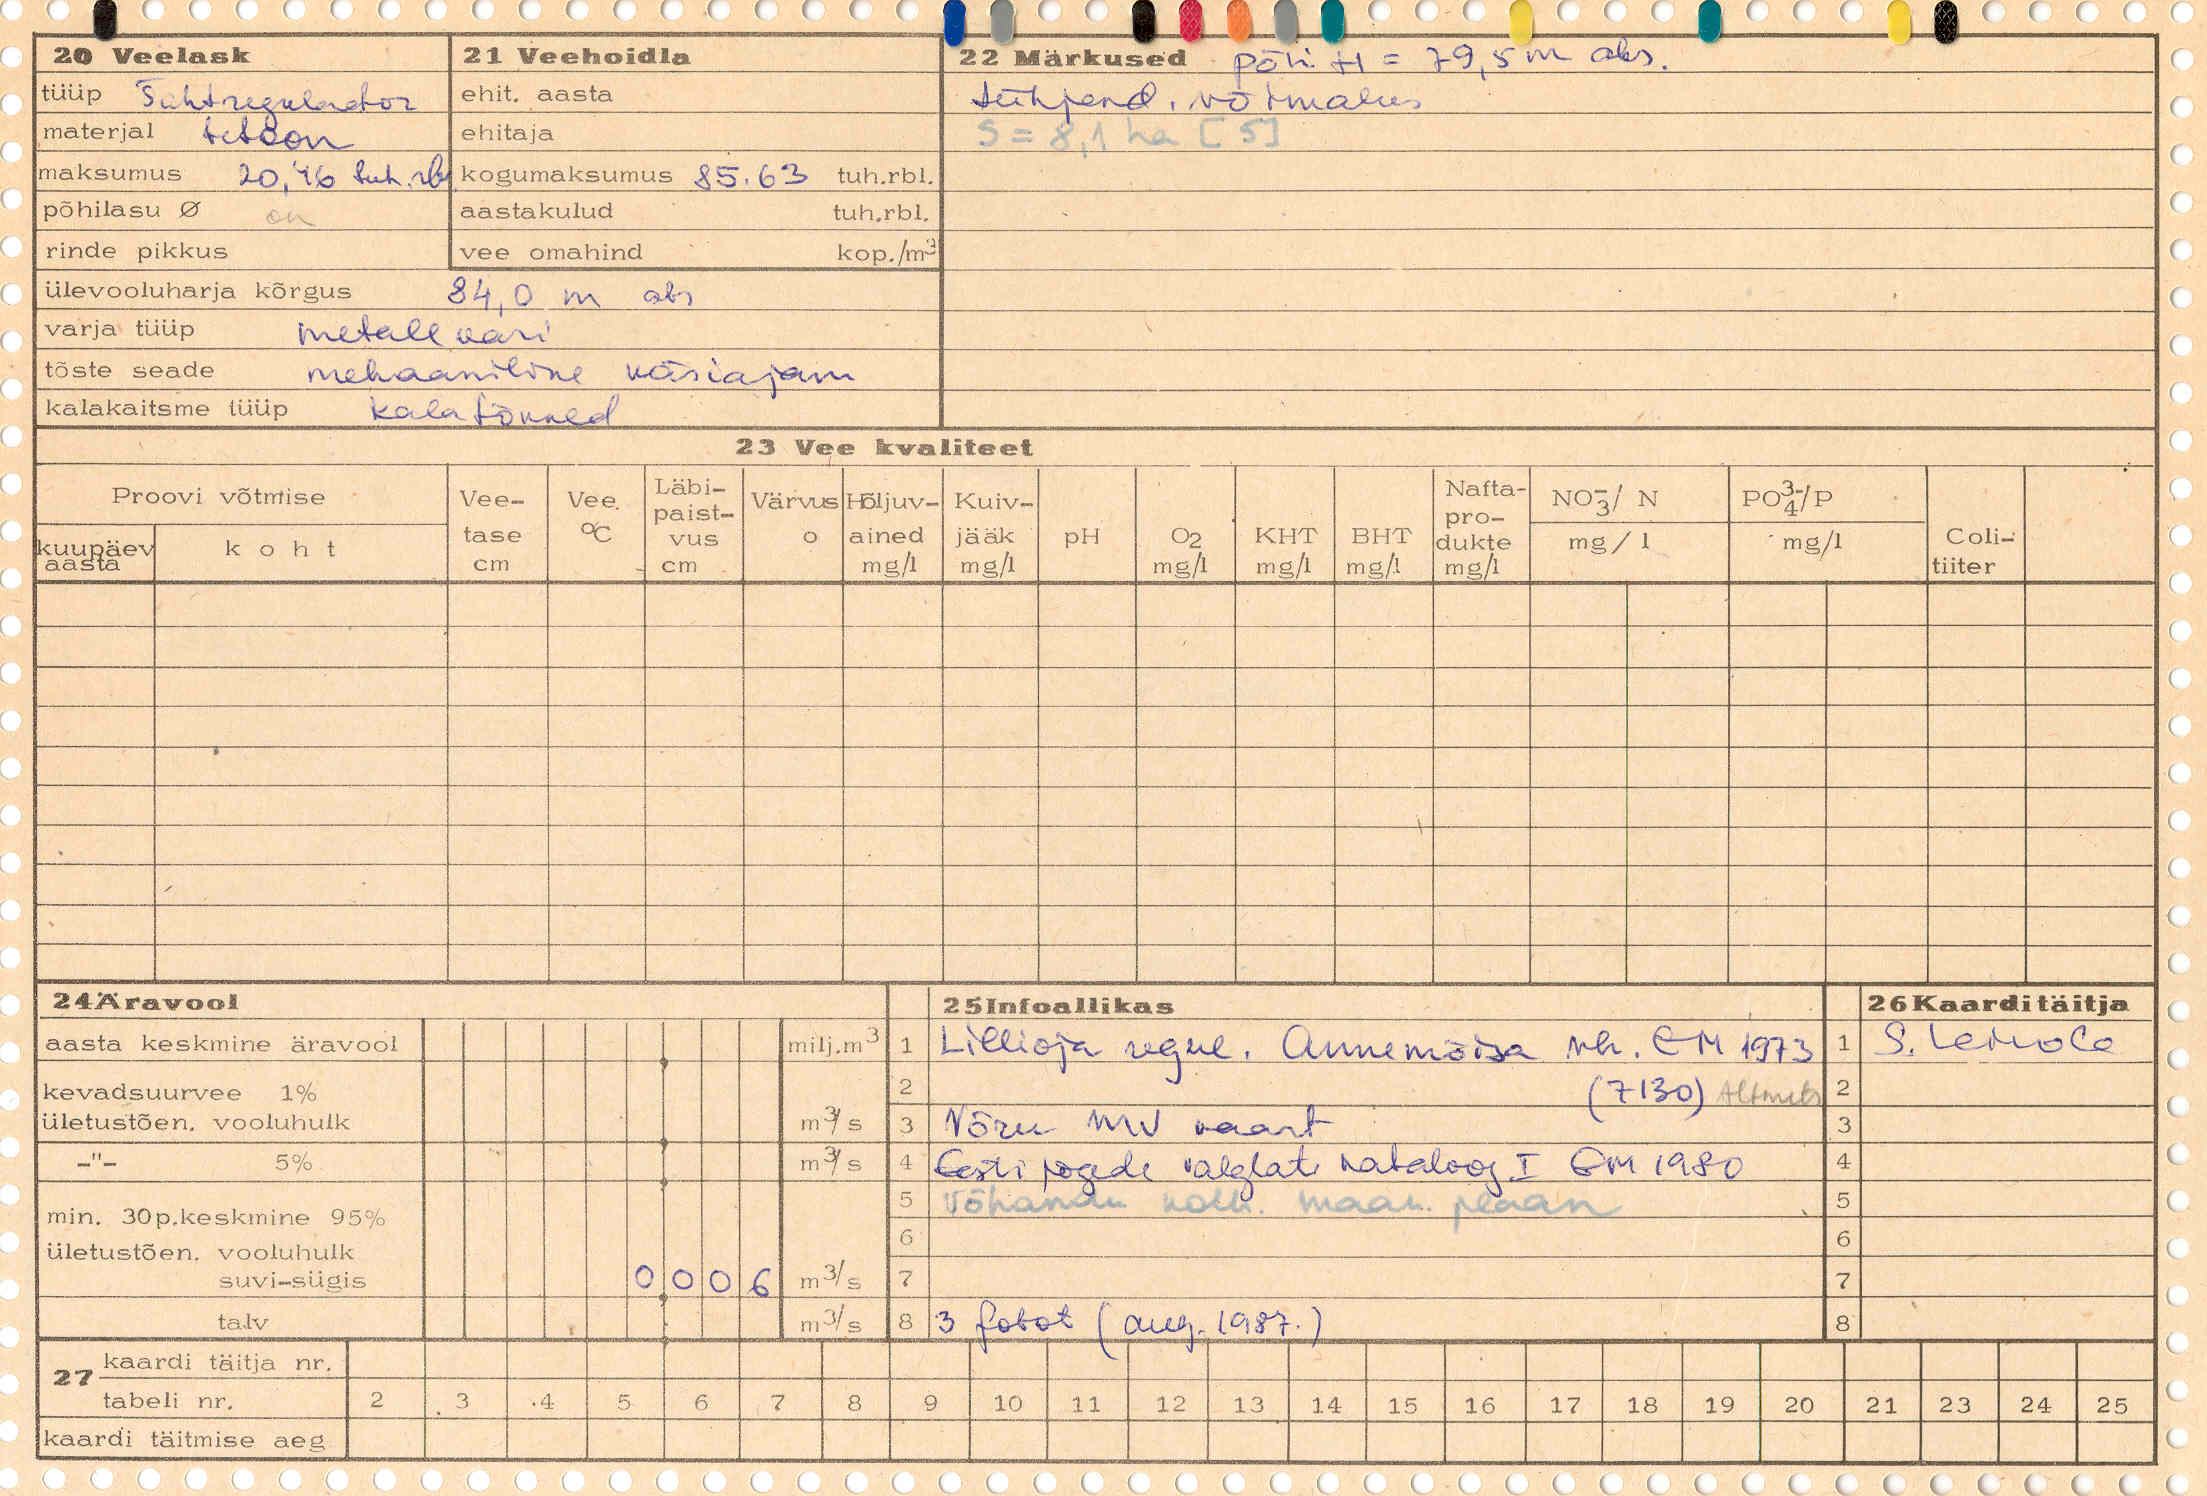 20 Veelask
tüüp Šahtregulaator
materjal betoon
maksumus 20,46 tuh.rbl
põhilasu Ø on
rinde pikkus
ülevooluharja kõrgus 84,0 m abs
varja tüüp metallvari
tõste seade mehaaniline käsiajam
kalakaitsme tüüp kalatõkked
21 Veehoidla
ehit. aasta
ehitaja
kogumaksumus 85.63 tuh.rbl.
aastakulud tuh.rbl.
vee omahind kop./m³
22 Märkused põhi H = 79,5 m abs.
tühjend. võimalus
S = 8,1 ha [5]
23 Vee kvaliteet
Proovi võtmise
kuupäev aasta
koht
Vee-tase cm
Vee °C
Läbi-paist-vus cm
Värvus o
Hõljuv-ained mg/l
Kuiv-jääk mg/l
pH
O2 mg/l
KHT mg/l
BHT mg/l
Nafta-pro-dukte mg/l
NO3-/ N mg/l
PO4 3-/P mg/l
Coli-tiiter
24 Äravool
aasta keskmine äravool milj.m³
kevadsuurvee 1%
ületustõen. vooluhulk m³/s
-"- 5% m³/s
min. 30p.keskmine 95%
ületustõen. vooluhulk
suvi-sügis 0 0 0 6 m³/s
talv m³/s
25 Infoallikas
1 Lillioja regul. Annemõisa vh. EM 1973
2 (7130)
3 Võru MV kaart
4 Eesti jõgede valglate kataloog I EM 1980
5 Võhandu kolh. maak. plaan
6
7
8 3 fotot (aug. 1987.)
26 Kaarditäitja
1 S.
2
3
4
5
6
7
8
27 kaardi täitja nr.
tabeli nr. 2 3 4 5 6 7 8 9 10 11 12 13 14 15 16 17 18 19 20 21 23 24 25
kaardi täitmise aeg